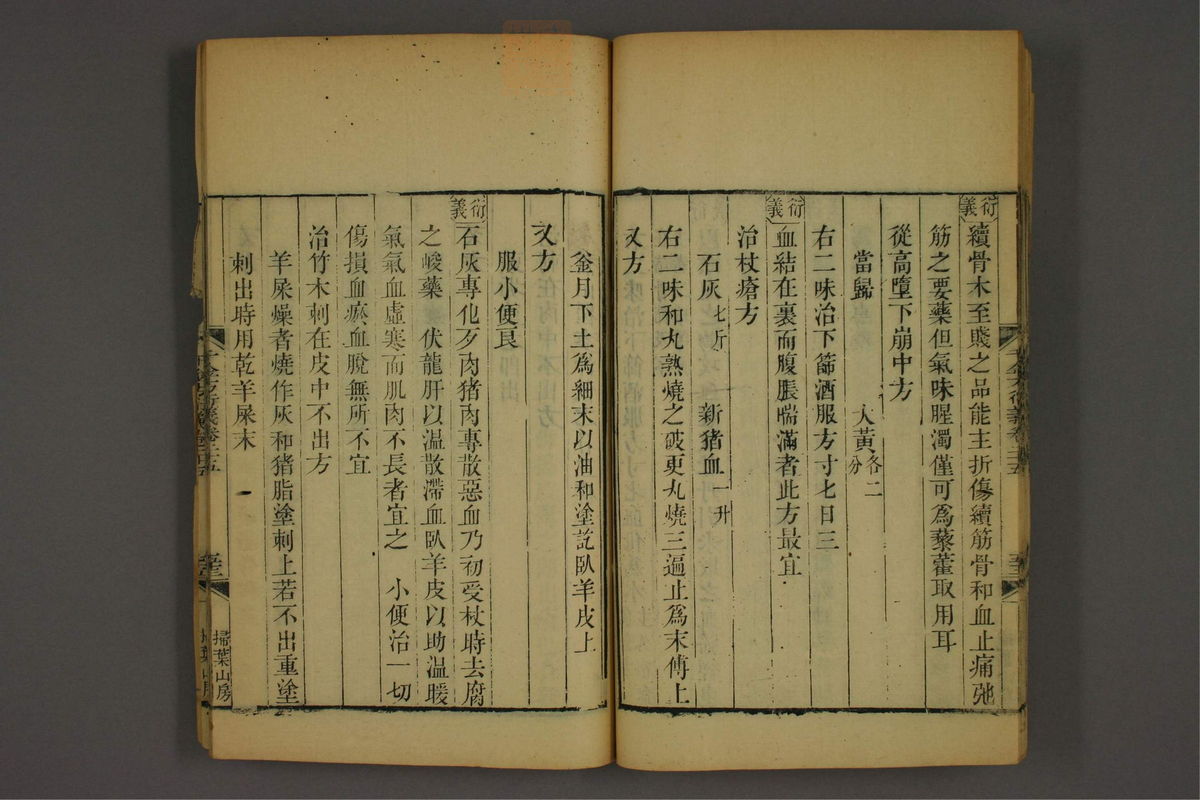 衍義 續骨木至賤之品能主折傷續筋骨和血止痛弛
筋之要藥但氣味腥濁僅可爲藜藿取用耳
從高墮下崩中方
當歸 大黃各二分
右二味治下篩酒服方寸匕日三
衍義 血結在裏而腹脹喘滿者此方最宜
治杖瘡方
石灰七斤 新猪血一升
右二味和丸熟燒之破更丸燒三遍止爲末傅上
又方
釜月下土爲細末以油和塗訖臥羊皮上
又方
服小便良
衍義 石灰專化歹肉猪肉專散惡血乃初受杖時去腐
之峻藥 伏龍肝以温散滯血臥羊皮以助温暖
氣氣血虛寒而肌肉不長者宜之 小便治一切
傷損血瘀血脫無所不宜
治竹木刺在皮中不出方
羊屎燥者燒作灰和猪脂塗刺上若不出重塗
刺出時用乾羊屎末
千金方衍義卷二十五
掃葉山房